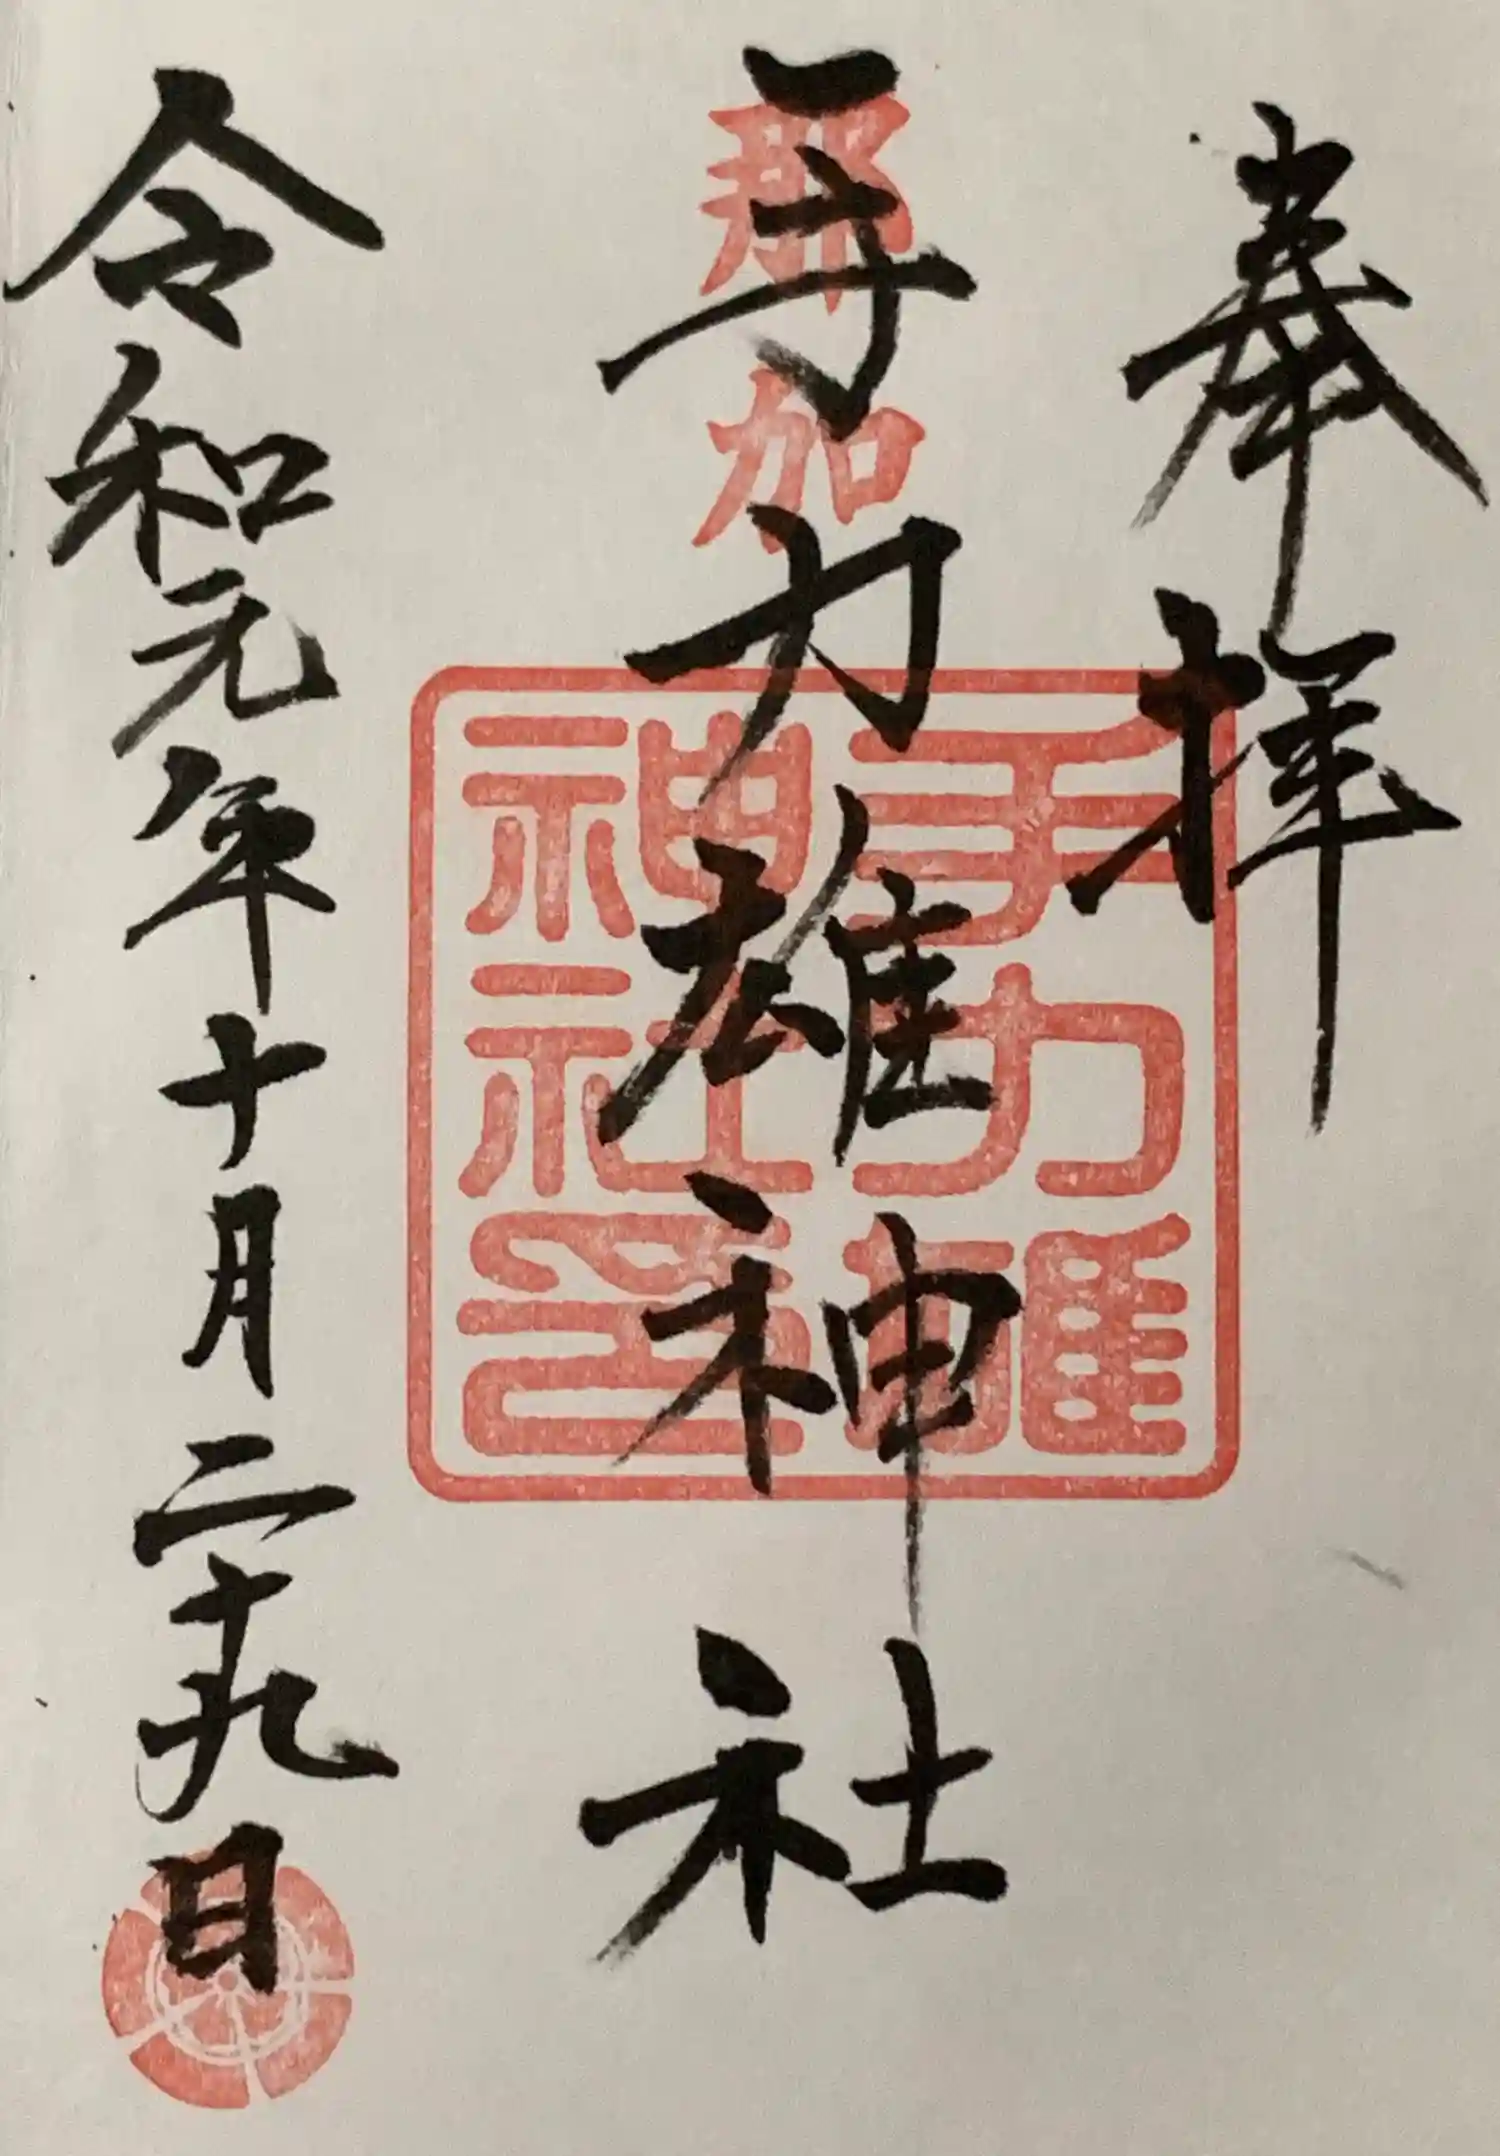 奉拝
那加
手力雄神社
手力雄
神社印
令和元年十月二十九日